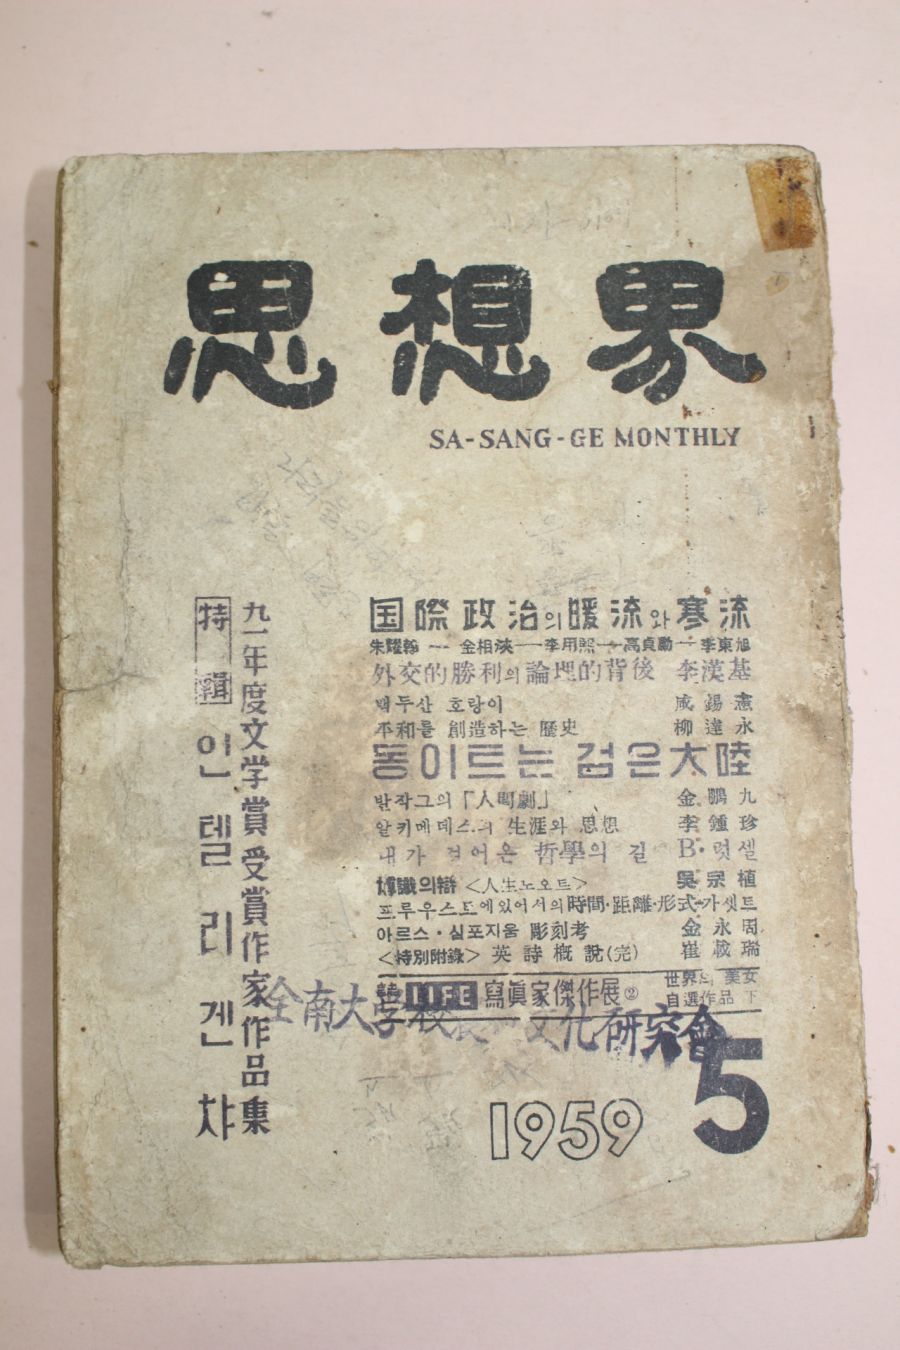 思想界
SA-SANG-GE MONTHLY
国際政治의暖流와寒流
朱耀翰 金相浹 李用熙 高貞勳 李東旭
外交的勝利의論理的背後 李漢基
백두산 호랑이 咸錫憲
平和를 創造하는 歷史 柳達永
동이트는 검은大陸
발작그의「人間劇」 金鵬九
알키메데스의 生涯와 思想 李鍾珍
내가 걸어온 哲學의 길 B·럿셀
博識의辯 <人生노오트> 吳宗植
프루우스트에있어서의時間·距離·形式·가셋트
아르스·심포지움 彫刻考 金永周
<特別附錄> 英詩槪說(完) 崔載瑞
LIFE 寫眞家傑作展② 世界의 美女
自選作品 下
九一年度文学賞受賞作家作品集
特輯 인텔리겐챠
全南大学校 文化硏究會
1959
5